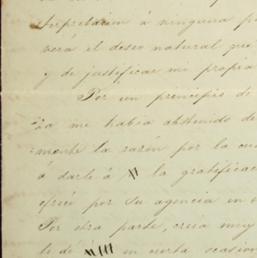 Interpretación á ninguna pe
verá el deseo natural que
y de justificar mi propia
Por un principio de
me habia abstenido de
mente la razón por la cua
á darle á XI la gratificac
ofrecí por su agencia en
Por otra parte, creia muy
le dí XIII en cierta ocasion